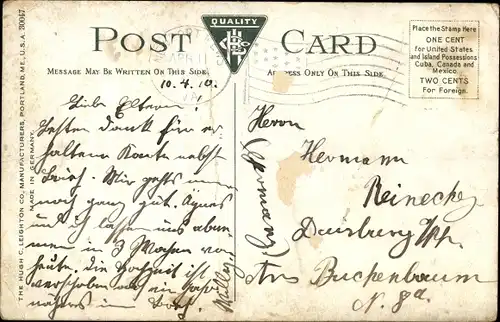 POST CARD
QUALITY
MESSAGE MAY BE WRITTEN ON THIS SIDE
ADDRESS ONLY ON THIS SIDE
Place the Stamp Here
ONE CENT
for United States
and Island Possessions
Cuba, Canada and
Mexico.
TWO CENTS
For Foreign.
THE HUGH C. LEIGHTON CO., MANUFACTURERS, PORTLAND, ME., U.S.A. 30067
MADE IN GERMANY.
10.4.10.
Liebe Eltern!
Besten Dank für er-
haltene Karte nebst
Brief. Mir gehts immer
noch ganz gut. Agnes
und ich lassen uns
in 3 Wochen von
heute. Die Hochzeit ist
verschoben auf ein
Willy
Herrn
Hermann
Reinecke
Duisburg
(Germany)
Am Buchenbaum
N. 8a.